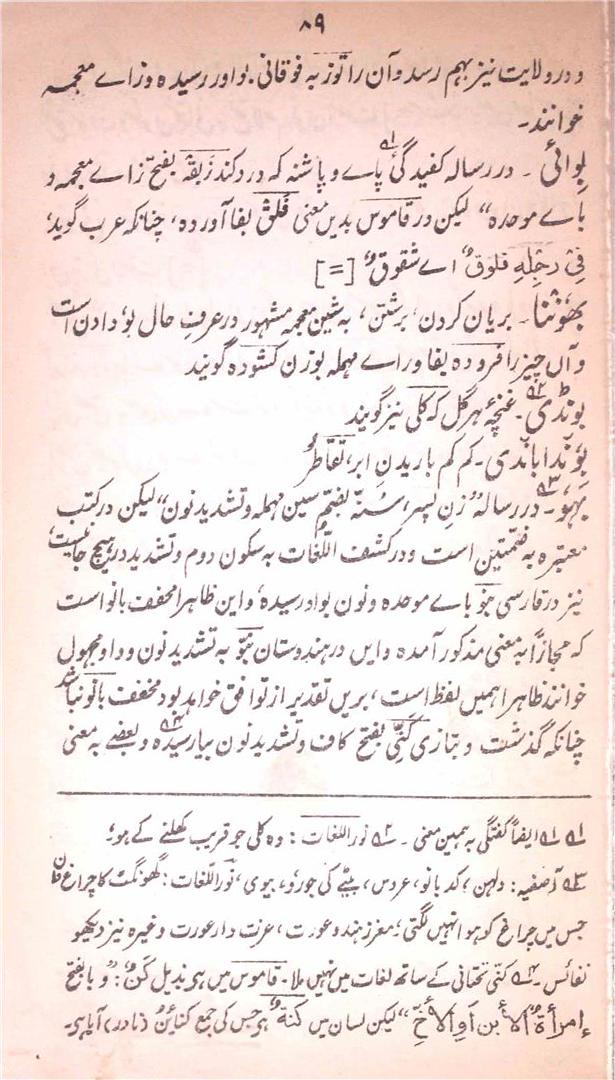 ۸۹
و در ولایت نیز بہم رسد و آن را توز بہ فوقانی بواو رسیدہ و زاے معجمہ
خوانند۔
بِوائی ۔ در رسالہ کفیدگی پاے و پاشنہ کہ درد کند زَبقہ بفتح زاے معجمہ و
باے موحدہ“ لیکن در قاموس بدیں معنی فَلَق بفا آوردہ، چنانکہ عرب گوید،
فِی رِجْلِهِ فلوقٌ اے شقوقٌ [=]
بھوننا ۔ بریاں کردن، برشتن، بہ شین معجمہ مشہور در عرفِ حال بو دادن است
و آں چیز را فرودہ بفا و راے مہملہ بوزن کشودہ گویند
بونڈی ۔ غنچۂ ہر گل کہ کلی نیز گویند
بُوندا باندی ۔ کم کم باریدنِ ابر، تقاطرُ
بہو ۔ در رسالہ ”زنِ پسر، سُنہّ بضم سین مہملہ و تشدید نون“ لیکن در کتب
معتبرہ بہ ضمتین است و در کشف اللّغات بہ سکون دوم و تشدید در ہیچ جا نیست،
نیز در فارسی بنو باے موحدہ و نون بواو رسیدہ، و این ظاہرا مخفف بانو است
کہ مجازاً بہ معنی مذکور آمدہ و ایں در ہندوستان بنّو بہ تشدید نون و واو مجہول
خوانند ظاہرا ہمیں لفظ است، بریں تقدیر از توافق خواہد بود مخفف بانو نباشد
چنانکہ گذشت و بتازی کَنّی بفتح کاف و تشدید نون بیا رسیدہ و بعضے بہ معنی
ایضاً کفتگی بہ ہمین معنی ۔ نور اللغات : وہ کلی جو قریب کھلنے کے ہو،
آصفیہ: دلہن، کدبانو، عروس، بیٹے کی جورو، بیوی، نور اللّغات : گھونگٹ کا چراغ فان
جس میں چراغ کو ہوا نہیں لگتی؛ معزز ہندو عورت، عزت دار عورت وغیرہ نیز دیکھو
نفائس ۔ کنّی تحتانی کے ساتھ لغات میں نہیں ملا ۔ قاموس میں ہی بذیل کَنّ: ”و بالفتح
إمرأةُ الأبنِ أوِ الأخِّ“ لیکن لسان میں کَنّة ہی جس کی جمع کنائن (نادر) آیا ہی۔